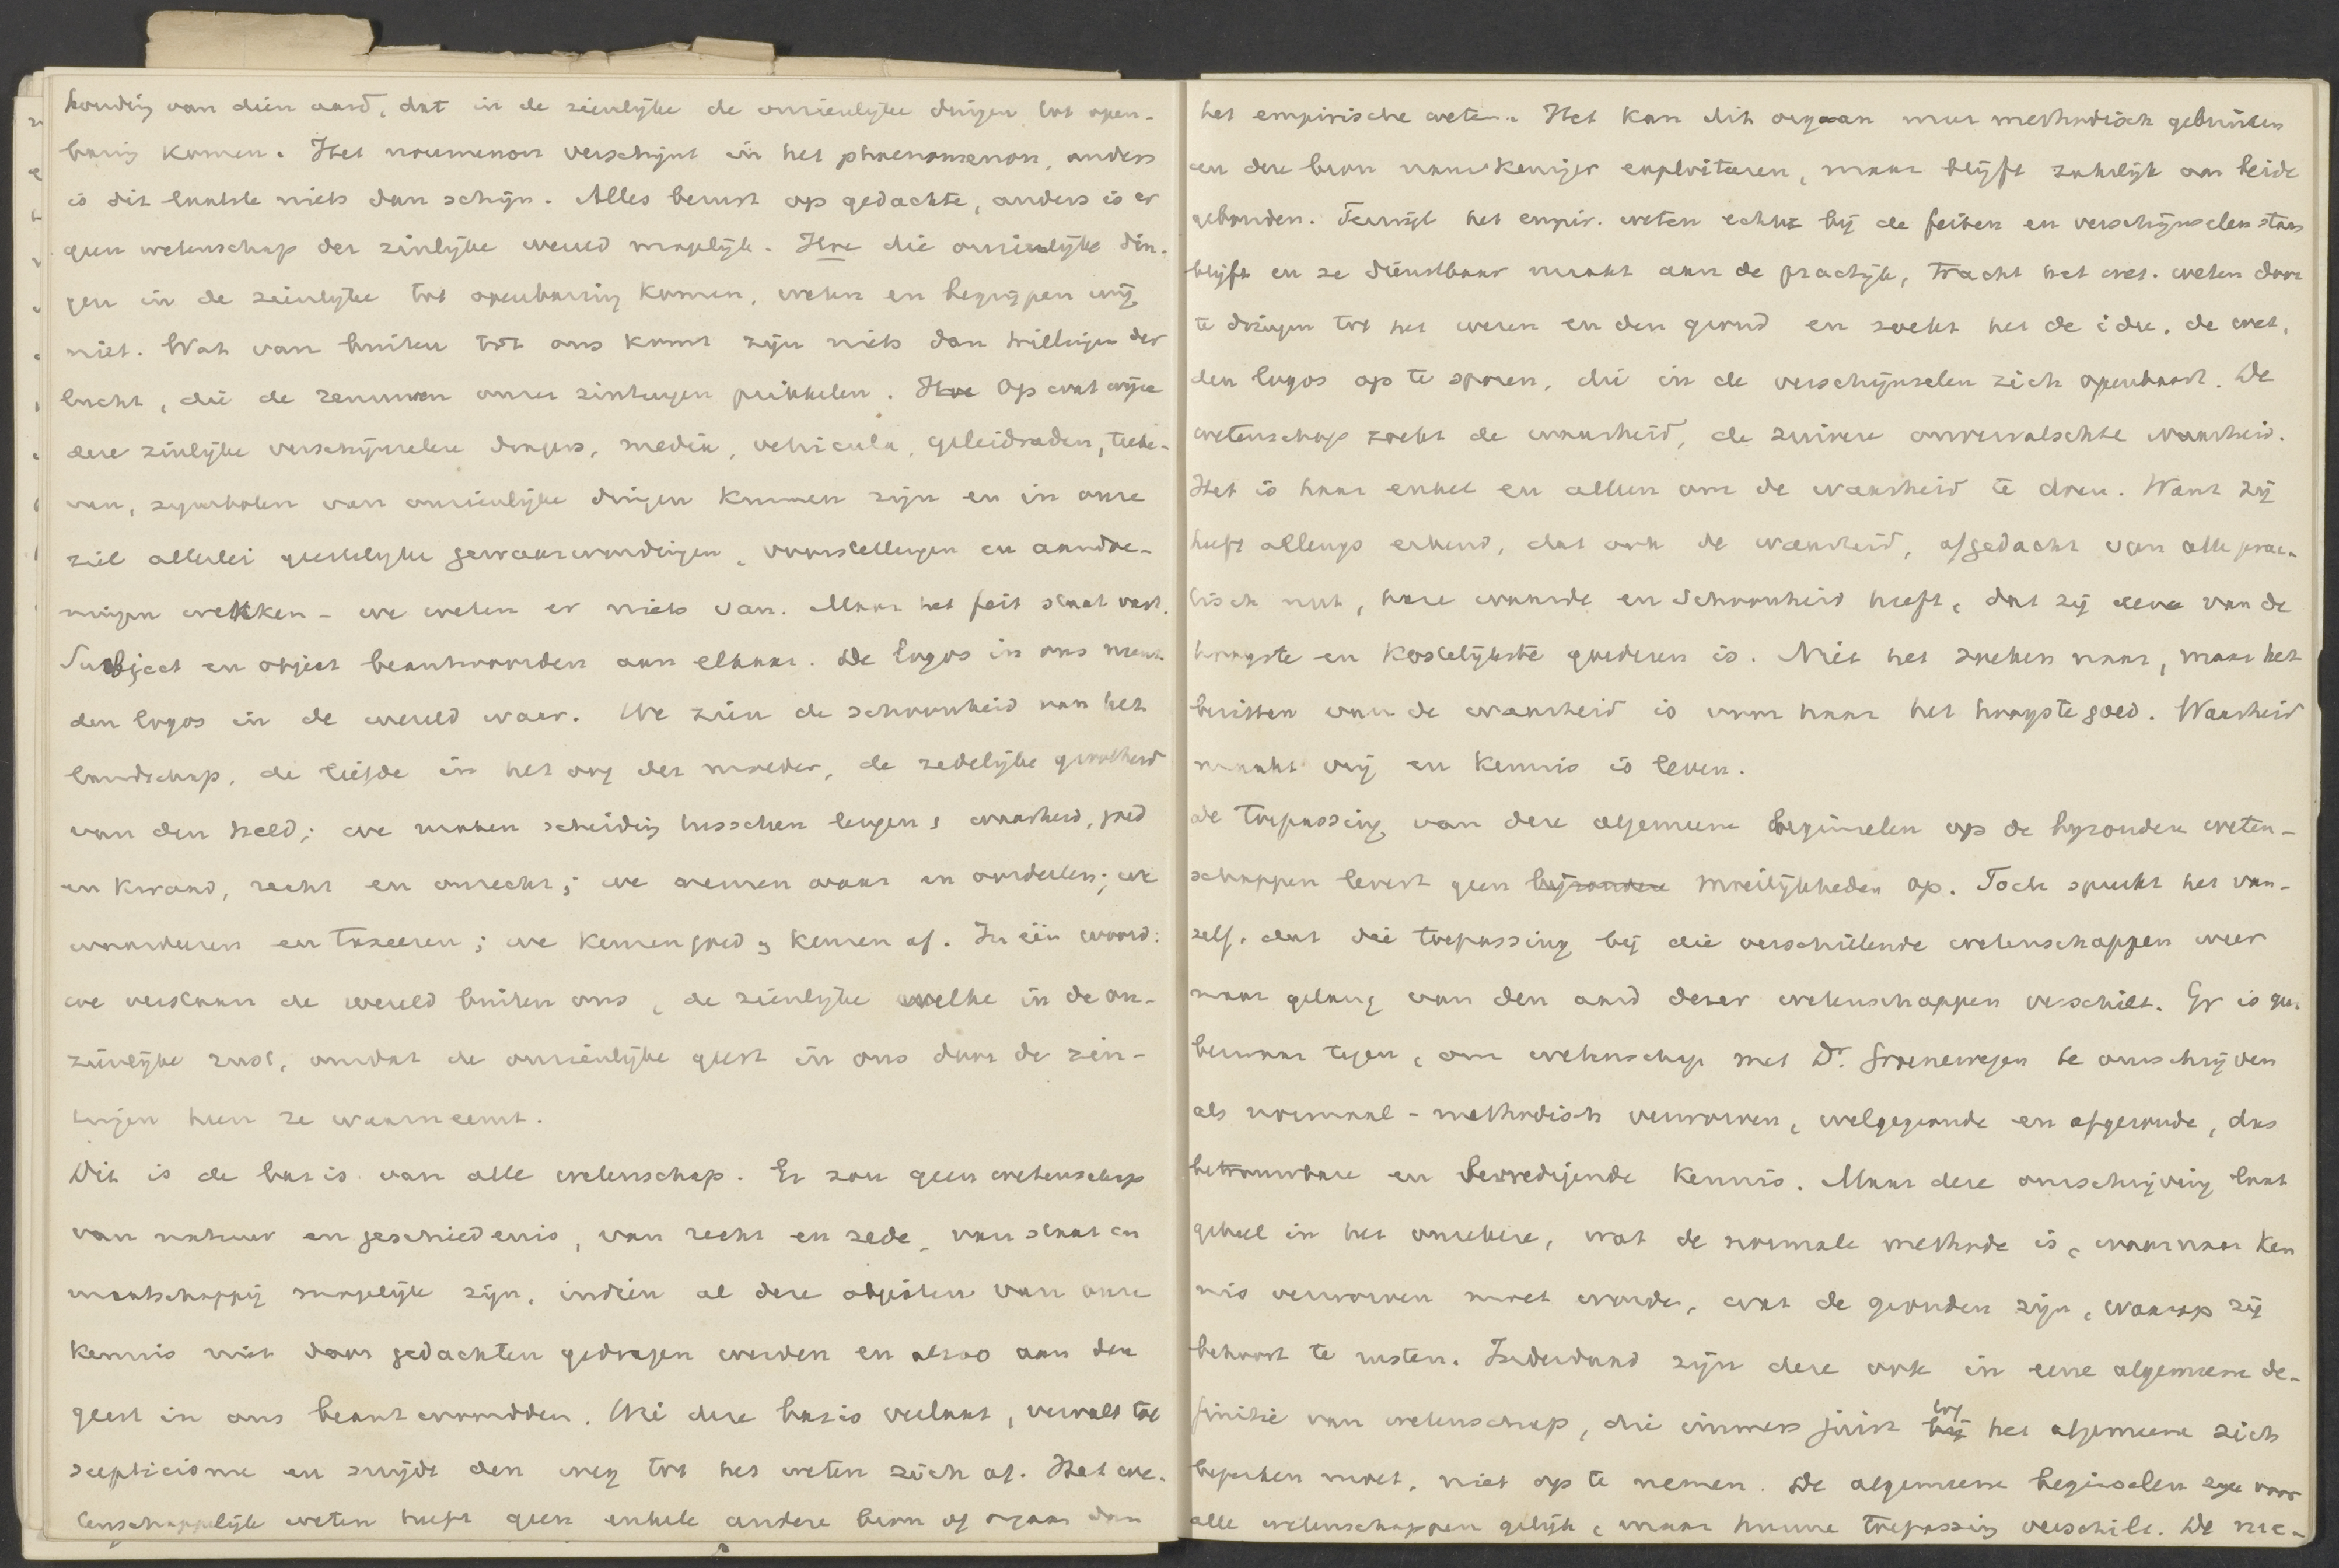 houding van dien aard, dat in de zienlijke de onzienlijke dingen tot open-
baring komen. Het noumenon verschijnt in het phaenomenon, anders
is dit laatste niets dan schijn. Alles berust op gedachte, anders is er
geen wetenschap der zinlijke wereld mogelijk. Hoe die onzienlijke din-
gen in de zienlijke tot openbaring komen, weten en begrijpen wij
niet. Wat van buiten tot ons komt zijn niets dan trillingen der
lucht, die de zenuwen onzer zintuigen prikkelen. Hoe Op wat wijze
deze zinlijke verschijnselen dragers, media, vehicula, geleidraden, teeke-
nen, symbolen van onzienlijke dingen kunnen zijn en in onze
ziel allerlei geestelijke gewaarwordingen, voorstellingen en aandoe-
ningen wekken - we weten er niets van. Maar het feit staat vast.
Subject en object beantwoorden aan elkaar. De logos in ons neemt
den logos in de wereld waar. We zien de schoonheid van het
landschap, de liefde in het oog der moeder, de zedelijke grootheid
van den held; we maken scheiding tusschen leugen & waarheid, goed
en kwaad, recht en onrecht; we nemen waar en oordeelen; we
waardeeren en taxeeren; we kennen goed & kennen af. In één woord:
we verstaan de wereld buiten ons, de zienlijke welke in de on-
zienlijke rust, omdat de onzienlijke geest in ons door de zin-
tuigen heen ze waarneemt.
Dit is de basis van alle wetenschap. Er zou geen wetenschap
van natuur en geschiedenis, van recht en zede, van staat en
maatschappij mogelijk zijn, indien al deze objecten van onze
kennis niet door gedachten gedragen werden en alzoo aan den
geest in ons beantwoordden. Wie deze basis verlaat, vervalt tot
scepticisme en snijdt den weg tot het weten zich af. Het we-
tenschappelijk weten heeft geen enkele andere bron of orgaan dan
het empirische weten. Het kan dit orgaan maar methodisch gebruiken
en deze bron nauwkeuriger exploiteeren, maar blijft zakelijk aan beide
gebonden. Terwijl het empir. weten echter bij de feiten en verschijnselen staan
blijft en ze dienstbaar maakt aan de practijk, tracht het wet. weten door
te dringen tot het wezen en den grond en zoekt het de idee, de wet,
den logos op te sporen, die in de verschijnselen zich openbaart. De
wetenschap zoekt de waarheid, de zuivere onvervalschte waarheid.
Het is haar enkel en alleen om de waarheid te doen. Want zij
heeft allengs erkend, dat ook de waarheid, afgedacht van alle prac-
tisch nut, hare waarde en schoonheid heeft, dat zij eene van de
hoogste en kostelijkste goederen is. Niet het zoeken naar, maar het
bezitten van de waarheid is voor haar het hoogste goed. Waarheid
maakt vrij en kennis is leven.
De toepassing van deze algemeene beginselen op de byzondere weten-
schappen levert geen bijzondere moeilijkheden op. Toch spreekt het van-
zelf, dat die toepassing bij die verschillende wetenschappen weer
naar gelang van den aard dezer wetenschappen verschilt. Er is geen
bezwaar tegen, om wetenschap met Dr. Groenewegen te omschrijven
als normaal-methodisch verworven, welgegronde en afgeronde, dus
betrouwbare en bevredigende kennis. Maar deze omschrijving laat
geheel in het onzekere, wat de normale methode is, waarnaar ken
nis verworven moet worden, wat de gronden zijn, waarop zij
behoort te rusten. Inderdaad zijn deze ook in eene algemeene de-
finitie van wetenschap, die immers juist bij by het algemeene zich
bepalen moet, niet op te nemen. De algemeene beginselen zijn voor
alle wetenschappen gelijk, maar hunne toepassing verschilt. De me-